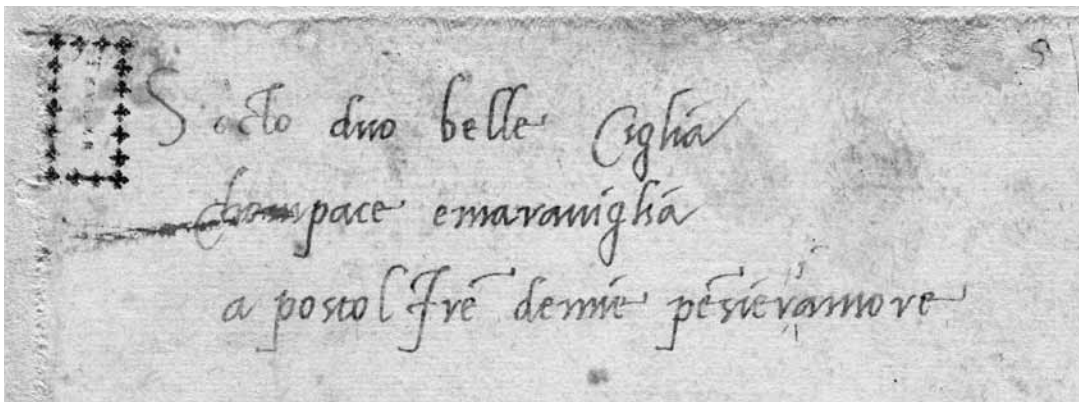 Socto duo belle Ciglia
chon pace emarauiglia
a postol Frē demie pēsieramore